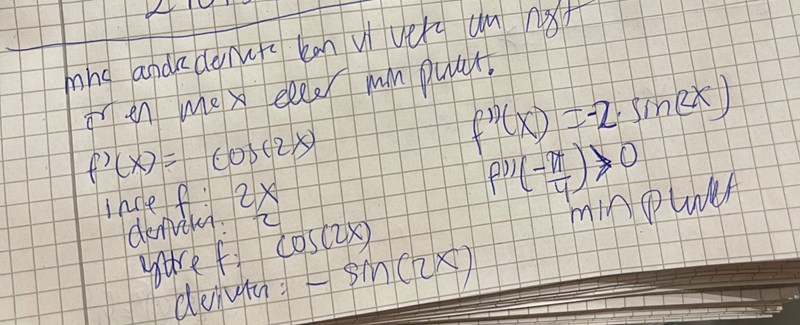 mha andraderivata kan vi veta um ngt
är en max eller min punkt.
f'(x) = cos(2x)
inre f: 2x
derivatan: 2
yttre f: cos(2x)
derivatan: - sin(2x)
f''(x) = -2 · sin(2x)
f''(-π/4) > 0
min punkt